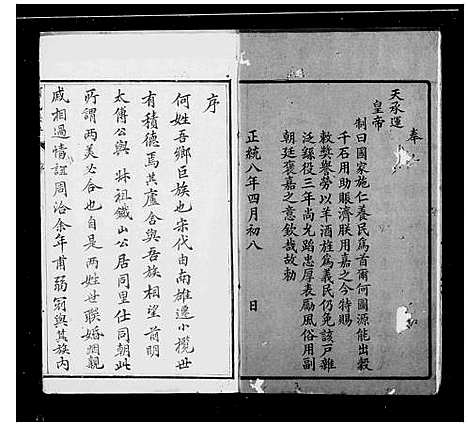 奉
天承運
皇帝
制曰國家施仁養民為首爾何圖源能出穀
千石用助賑濟朕用嘉之今特賜
敕獎譽勞以羊酒旌為義民仍免該戶雜
泛繇役三年尚允蹈忠厚表勵風俗用副
朝廷褒嘉之意欽哉故勅
正統八年四月初八 日
序
何姓吾鄉巨族也宋代由南雄遷小欖世
有積德焉其廬舍與吾族相望前明
太傅公與 祖鐵山公居同里仕同朝此
所謂兩美必合也自是兩姓世聯婚姻親
戚相過情誼周洽余年甫弱冠與其族內